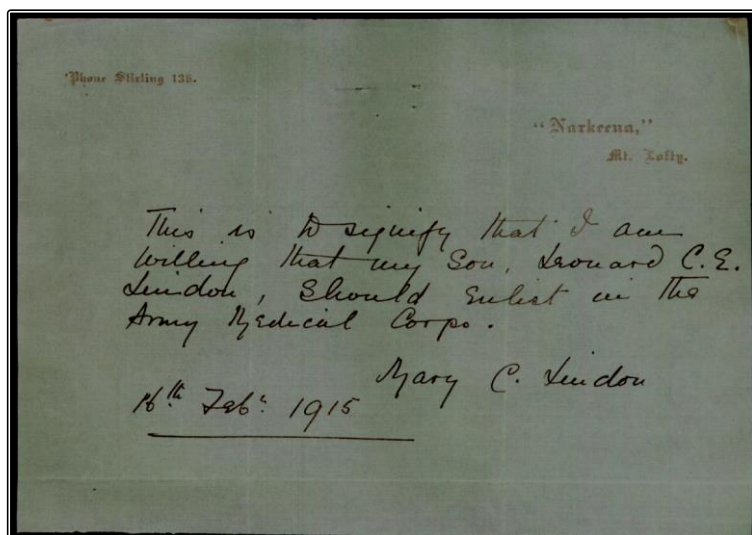 'Phone Stirling 136.
"Narkeena,"
Mt. Lofty.
This is to signify that I am
willing that my Son, Leonard C.E.
Lindon, Should Enlist in the
Army Medical Corps.
Mary C. Lindon
16th Feb: 1915